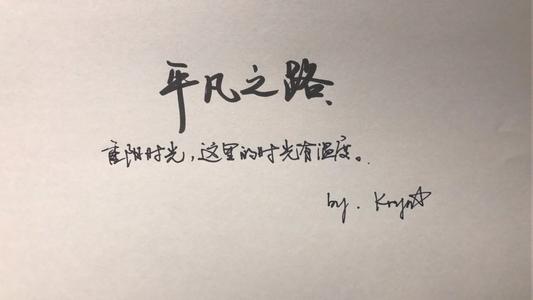 平凡之路、
重阳时光,这里的时光有温度。
by.